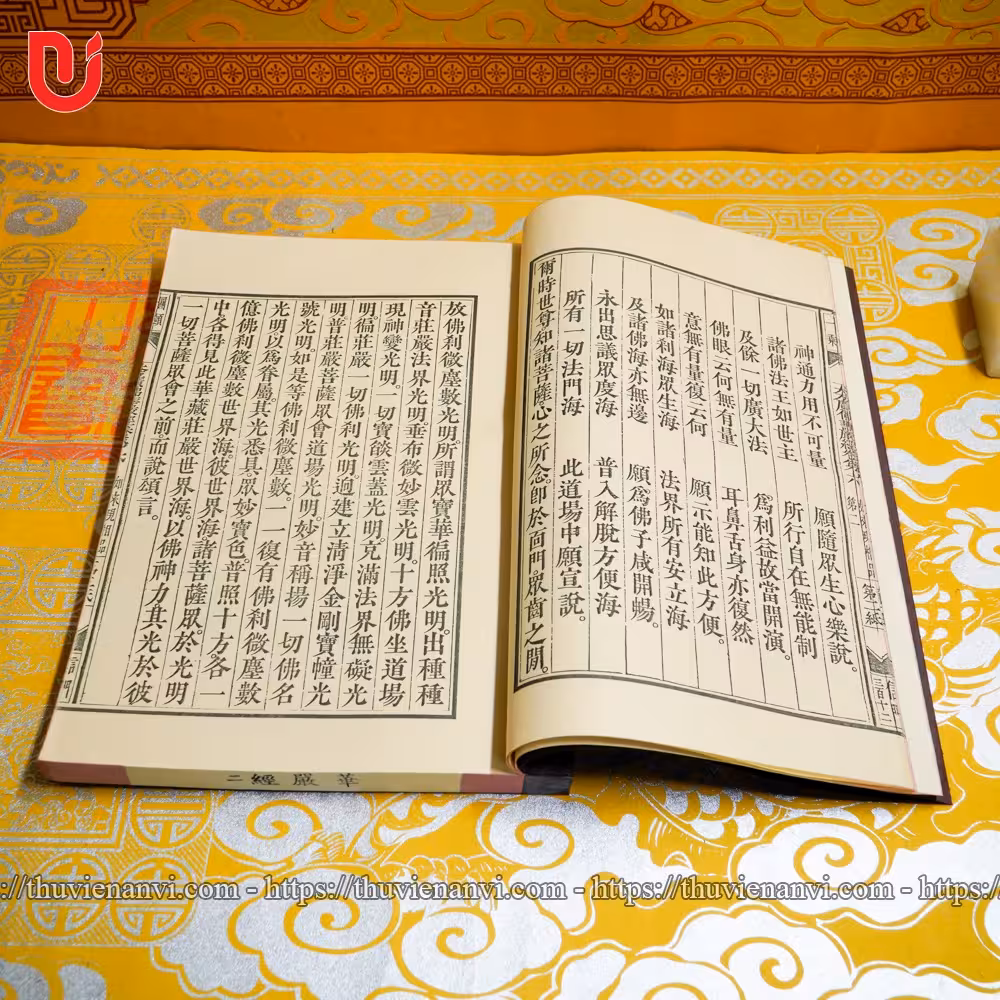 大方廣佛華嚴經卷六
第二紙
三百十二
神通力用不可量 願隨眾生心樂說。
諸佛法王如世王 所行自在無能制
及餘一切廣大法 爲利益故當開演。
佛眼云何無有量 耳鼻舌身亦復然
意無有量復云何 願示能知此方便。
如諸剎海眾生海 法界所有安立海
及諸佛海亦無邊 願爲佛子咸開暢。
永出思議眾度海 普入解脫方便海
所有一切法門海 此道場中願宣說。
爾時世尊知諸菩薩心之所念。即於面門。眾齒之間。
放佛剎微塵數光明。所謂眾寶華徧照光明。出種種
音莊嚴法界光明。垂布微妙雲光明。十方佛坐道場
現神變光明。一切寶燄雲蓋光明。充滿法界無礙光
明。徧莊嚴一切佛剎光明。迥建立清淨金剛寶幢光
明。普莊嚴菩薩眾會道場光明。妙音稱揚一切佛名
號光明。如是等佛剎微塵數。一一復有佛剎微塵數
光明以爲眷屬。其光悉具眾妙寶色。普照十方。各一
億佛剎微塵數世界海。彼世界海諸菩薩眾。於光明
中各得見此華藏莊嚴世界海。以佛神力。其光於彼
一切菩薩眾會之前而說頌言。
華嚴經 二
://thuvienanvi.com - https://thuvienanvi.com - https://thuvienanvi.com - https:/